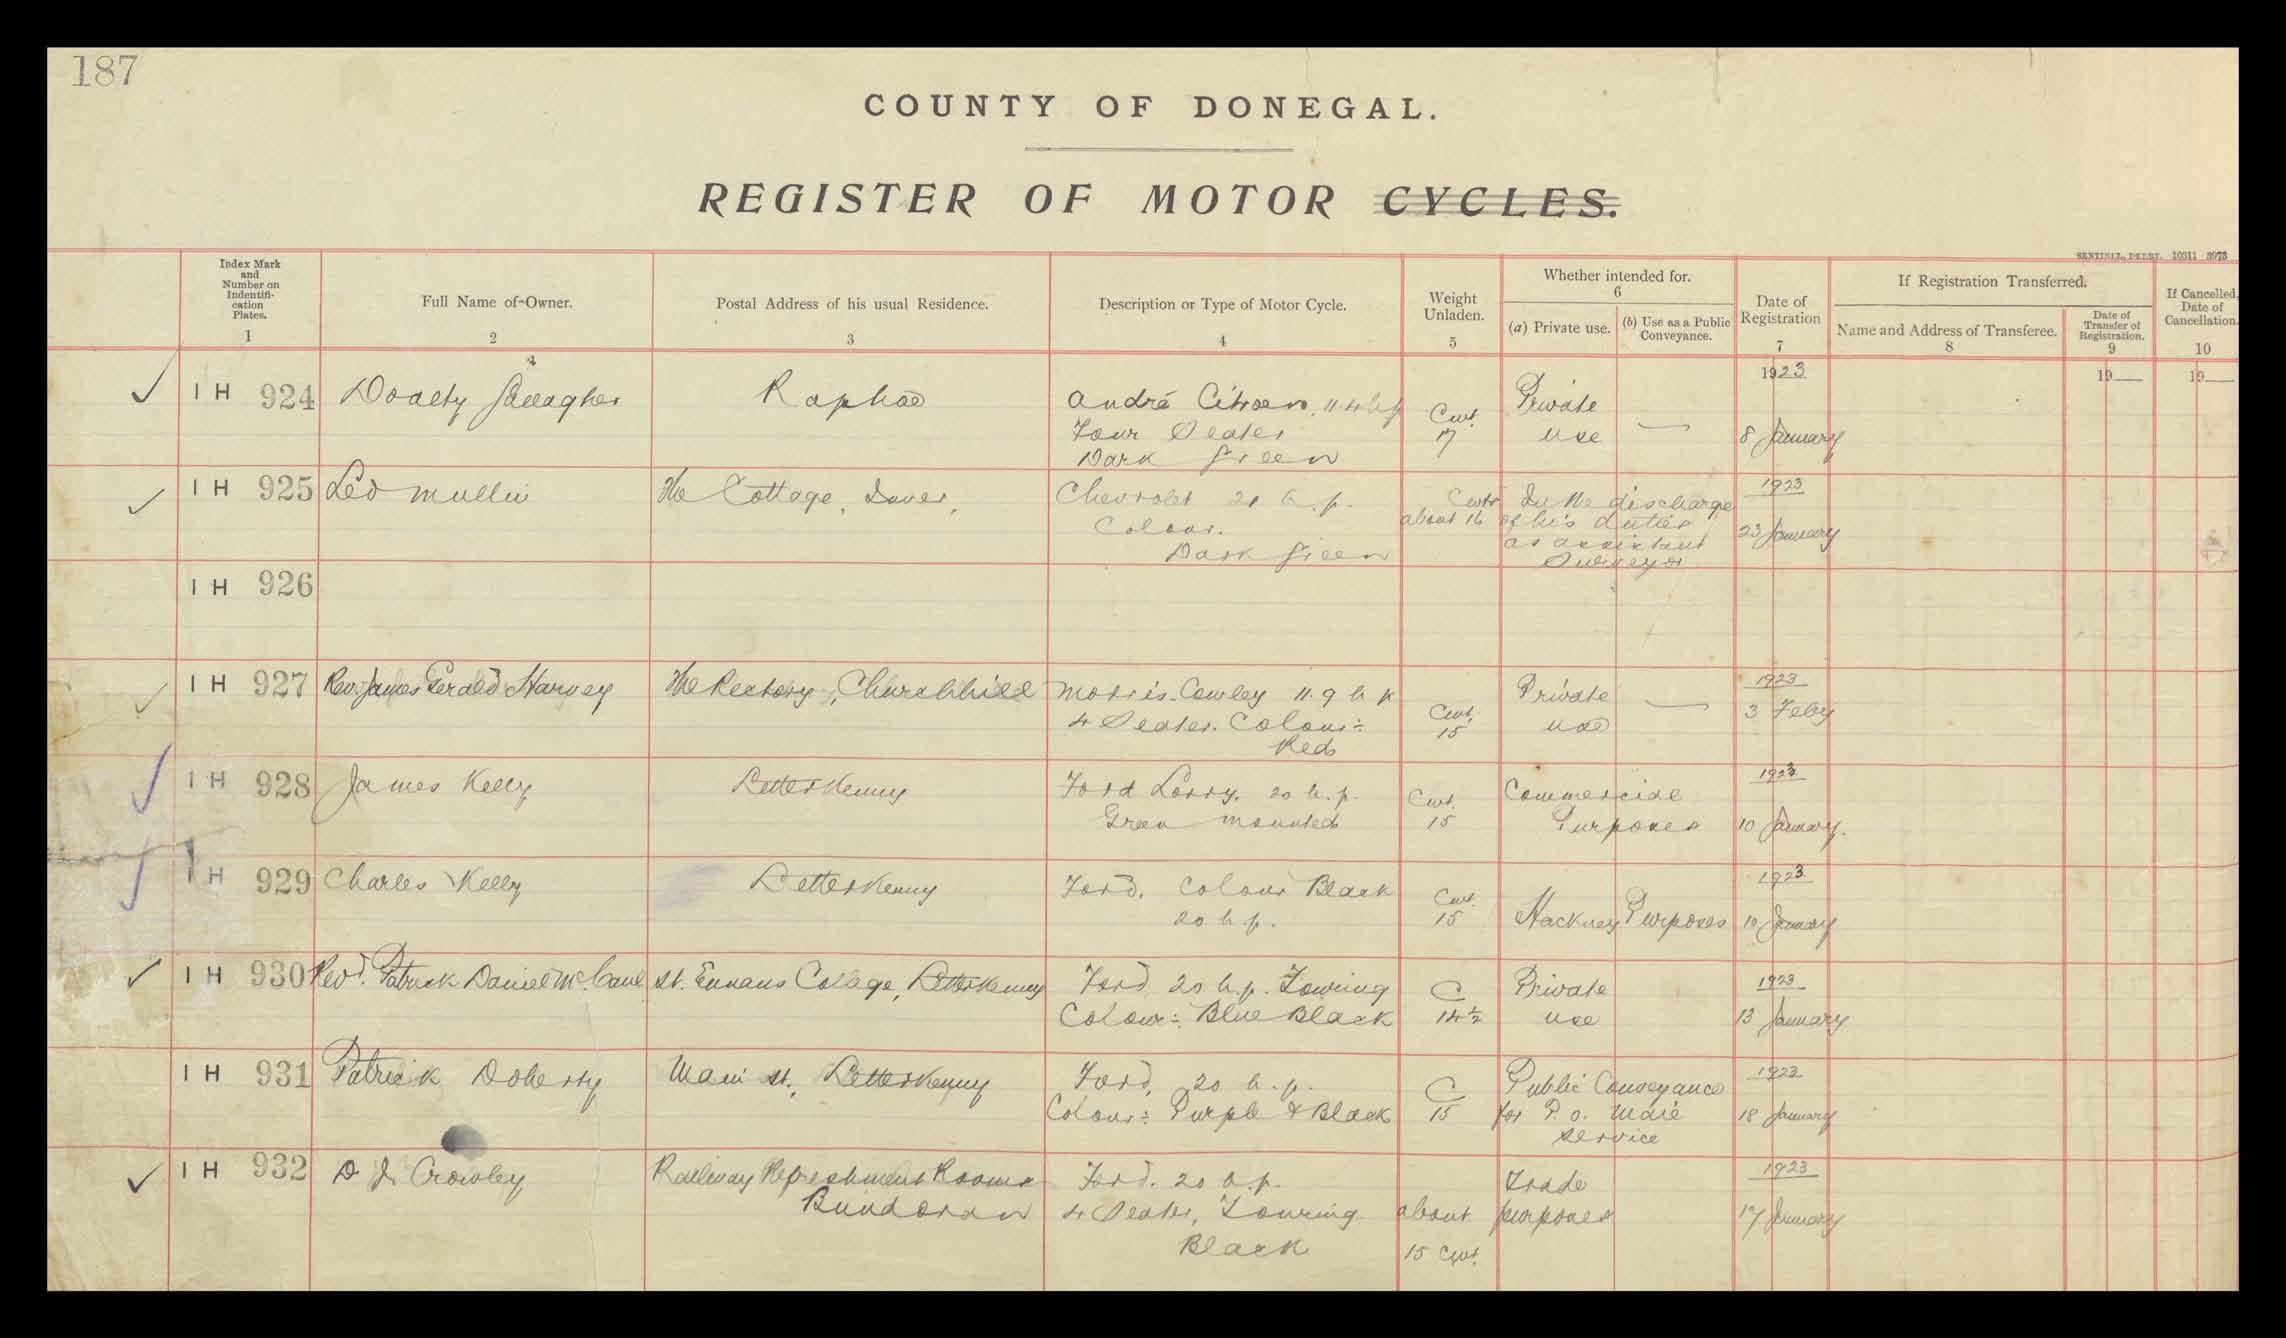 187
COUNTY OF DONEGAL.
REGISTER OF MOTOR CYCLES.
SENTINEL, DERRY. 10311 3973
Index Mark
and
Number on
Indentifi-
cation
Plates.
1
Full Name of Owner.
2
Postal Address of his usual Residence.
3
Description or Type of Motor Cycle.
4
Weight
Unladen.
5
Whether intended for.
6
(a) Private use.
(b) Use as a Public
Conveyance.
Date of
Registration
7
If Registration Transferred.
Name and Address of Transferee.
8
Date of
Transfer of
Registration.
9
If Cancelled,
Date of
Cancellation.
10
1923
19
19
I H 924 Gallagher Raphoe André Citroen 11.4 h p
Four Seater
Dark Green
Cwt.
17
Private
use
8 January
I H 925 Leo Mullin The Cottage, Chevrolet 21 h.p.
Colour.
Dark Green
Cwts
about 16
In the discharge
of his duties
as assistant
Surveyor
1923
23 January
I H 926
I H 927 Rev. James Gerald Harvey The Rectory, Churchhill Morris-Cowley 11.9 h p
4 Seater. Colour:-
Red
Cwt.
15
Private
use
1923
3 Feby
I H 928 James Kelly Letterkenny Ford Lorry. 20 h.p.
Green mounted
Cwt.
15
Commercial
Purposes
1923
10 January.
I H 929 Charles Kelly Letterkenny Ford. Colour Black
20 h.p.
Cwt.
15
Hackney Purposes
1923
10 January
I H 930 Revd. Patrick Daniel McCaul St. Eunans College, Letterkenny Ford 20 h.p. Touring
Colour:- Blue Black
C
14½
Private
use
1923
13 January
I H 931 Patrick Doherty Main St., Letterkenny Ford, 20 h.p.
Colour:- Purple & Black
C
15
Public Conveyance
for P.O. Mail
Service
1923
18 January
I H 932 D J Crowley Railway Refreshment Rooms
Bundoran
Ford. 20 h.p.
4 Seater, Touring
Black
about
15 Cwt.
Trade
purposes
1923
17 January